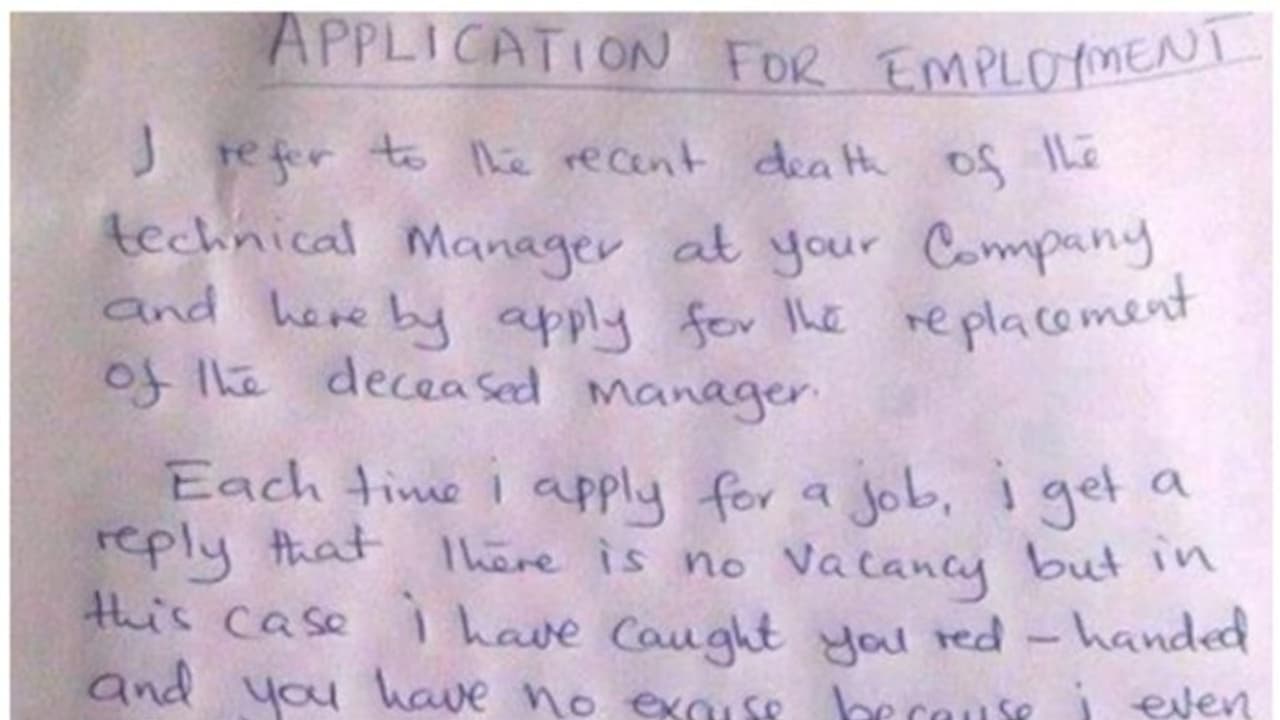 APPLICATION FOR EMPLOYMENT
I refer to the recent death of the
technical Manager at your Company
and here by apply for the replacement
of the deceased manager.
Each time i apply for a job, i get a
reply that there is no Vacancy but in
this case i have Caught you red - handed
and you have no excuse because i even